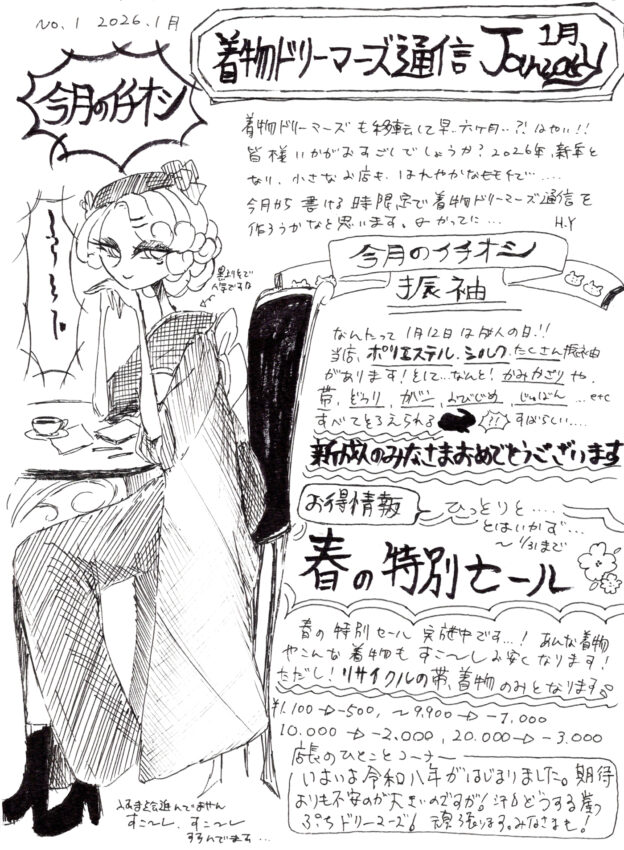 No.1 2026.1月
着物ドリーマーズ通信 1月 January
今月のイチオシ
着物ドリーマーズも移転して早.六ヶ月..?!はやい!!
皆様いかがおすごしでしょうか?2026年、新年と
なり、小さなお店も、はれやかなせもちで....
今月から書ける時限定で着物ドリーマーズ通信を
作ろうかなと思います。よかってに....
H.Y
今月のイチオシ
振袖
なんたって1月12日は成人の日!!
当店、ポリエステル、シルク、たくさん振袖
があります!そして...なんと!かみかざりや、
帯、ぞうり、かばん、おびじめ、じゅばん...etc
すべてそろえられる ?! すばらしい....
新成人のみなさまおめでとうございます
お得情報
ひっとりと....
とはいかず...
~1/31まで
春の特別セール
春の特別セール実施中です...!あんな着物
やこんな着物もすこ〜しお安くなります!
ただし!リサイクルの帯、着物のみとなります。
¥1.100→-500, ~9.900→-1.000
10.000→-2.000, 20.000→-3.000
店長のひとことコーナー
いよいよ令和八年がはじまりました。期待
よりも不安のが大きいのですが!汗 どうする
ぷちドリーマーズ! 頑張ります。みなさまも!
すこ〜し、すこ〜し
すすんでます...